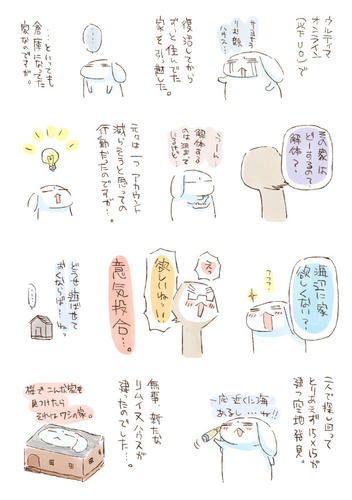 ウルティマ
オンライン
(以下UO)で
さようなら
りむ鯖
ハウス…
復活してから
ずっと住んでた
家を引っ越した。
…
…といっても
倉庫になってた
家なのですが。
その家は
どーするの?
解体?
うーん
解体する
のは済まで
しのびど
元々は一つアカウント
減らそうと思っての
行動だったのですが…。
海辺に家
欲しくない?
フフフ
え
欲しいねっ!!
意気投合…。
どうせ遊ばせて
おくならば…ね。
二人で探し回って
とりあえず15×15が
建つ空地発見。
一応近くに海
あるし…ね!!
無事、新たな
リムイヌハウスが
建たのでした…。
桜でこんな家を
見つけたら
それはワシの家。